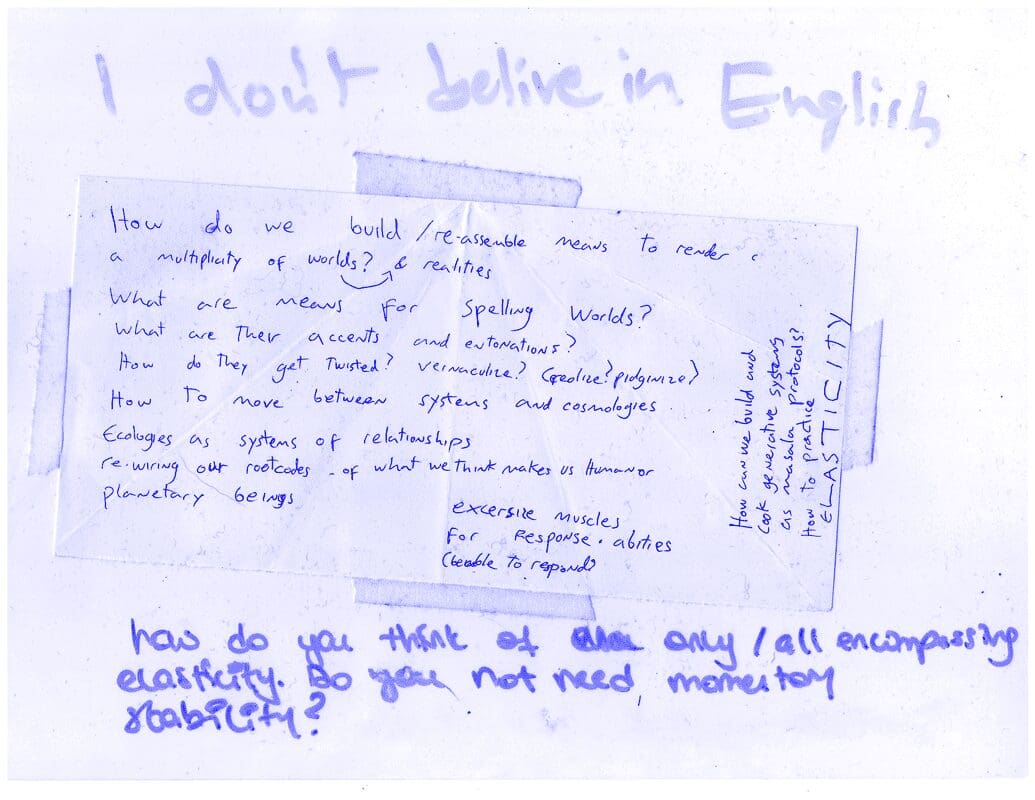 I don't belive in English
How do we build / re-assemble means to render
a multiplicity of worlds? & realities
What are means for Spelling Worlds?
What are Their accents and entonations?
How do They get Twisted? vernaculize? Creolize? pidginize?
How To move between systems and cosmologies
Ecologies as systems of relationships
re-wiring our rootcodes - of what we think makes us Human or
planetary beings
excersize muscles
For Response.abities
(beable to respond?
How can we build and
cook generative systems
as masala protocols?
How to practice
ELASTICITY
how do you think of only / all encompassing
elasticity. Do you not need momentary
stability?